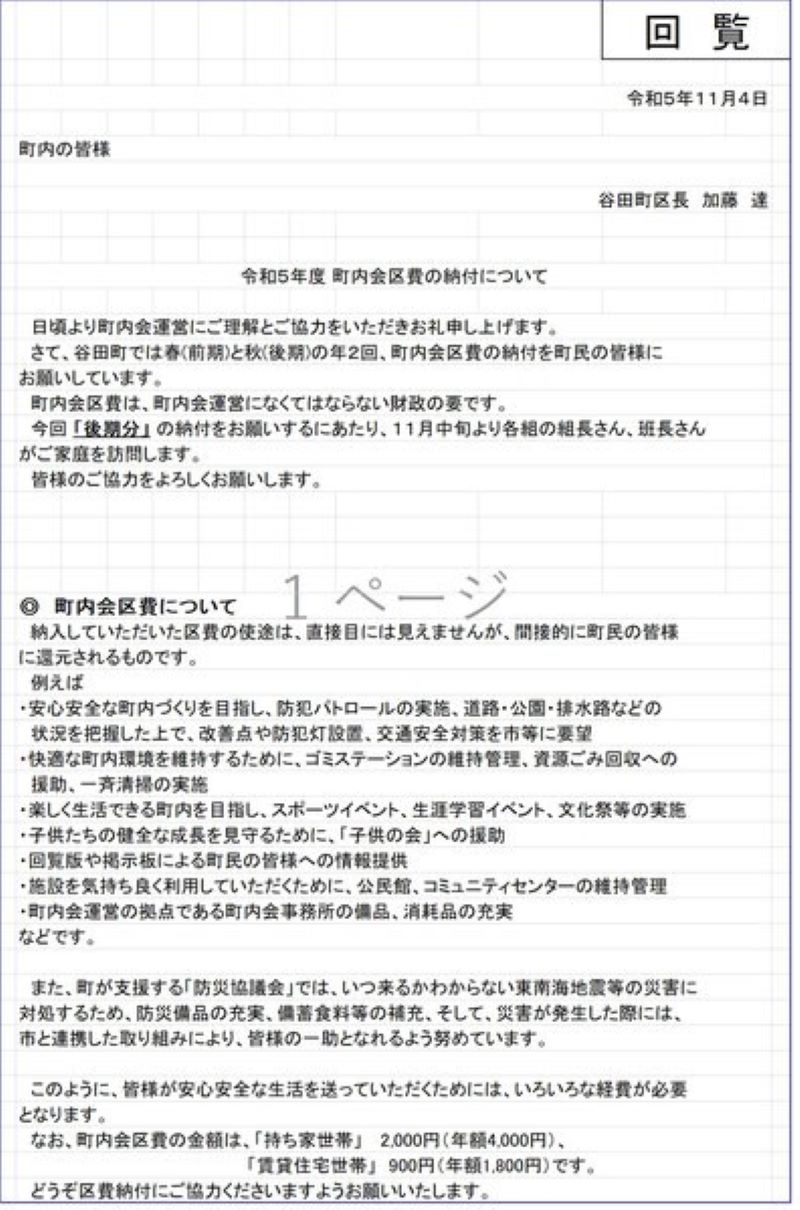 回 覧
令和5年11月4日
町内の皆様
谷田町区長 加藤 達
令和5年度 町内会区費の納付について
日頃より町内会運営にご理解とご協力をいただきお礼申し上げます。
さて、谷田町では春(前期)と秋(後期)の年2回、町内会区費の納付を町民の皆様に
お願いしています。
町内会区費は、町内会運営になくてはならない財政の要です。
今回「後期分」の納付をお願いするにあたり、11月中旬より各組の組長さん、班長さん
がご家庭を訪問します。
皆様のご協力をよろしくお願いします。
1 ページ
◎ 町内会区費について
納入していただいた区費の使途は、直接目には見えませんが、間接的に町民の皆様
に還元されるものです。
例えば
・安心安全な町内づくりを目指し、防犯パトロールの実施、道路・公園・排水路などの
状況を把握した上で、改善点や防犯灯設置、交通安全対策を市等に要望
・快適な町内環境を維持するために、ゴミステーションの維持管理、資源ごみ回収への
援助、一斉清掃の実施
・楽しく生活できる町内を目指し、スポーツイベント、生涯学習イベント、文化祭等の実施
・子供たちの健全な成長を見守るために、「子供の会」への援助
・回覧版や掲示板による町民の皆様への情報提供
・施設を気持ち良く利用していただくために、公民館、コミュニティセンターの維持管理
・町内会運営の拠点である町内会事務所の備品、消耗品の充実
などです。
また、町が支援する「防災協議会」では、いつ来るかわからない東南海地震等の災害に
対処するため、防災備品の充実、備蓄食料等の補充、そして、災害が発生した際には、
市と連携した取り組みにより、皆様の一助となれるよう努めています。
このように、皆様が安心安全な生活を送っていただくためには、いろいろな経費が必要
となります。
なお、町内会区費の金額は、「持ち家世帯」 2,000円(年額4,000円)、
「賃貸住宅世帯」 900円(年額1,800円)です。
どうぞ区費納付にご協力くださいますようお願いいたします。